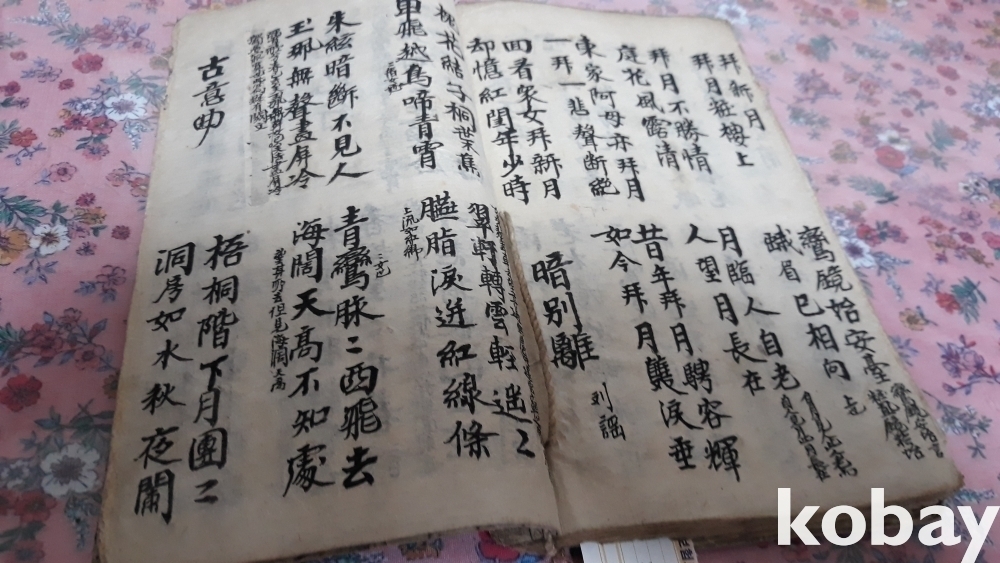 拜新月
拜月粧樓上
鸞鏡始安臺
蛾眉已相向
拜月不勝情
庭花風露清
月臨人自老
人望月長在
東家阿母亦拜月
一拜一悲聲斷絕
昔年拜月騁容輝
如今拜月雙淚垂
回看眾女拜新月
却憶紅閨年少時
暗別離 刘謡
槐花結子桐葉焦
單飛越鳥啼青霄
翠軒轉雲輕遥〻
臙脂淚迸紅線條
朱絃暗斷不見人
玉珮無聲畫屏冷
青鸞脉〻西飛去
海闊天高不知處
古意曲
梧桐階下月團〻
洞房如水秋夜闌
kobay